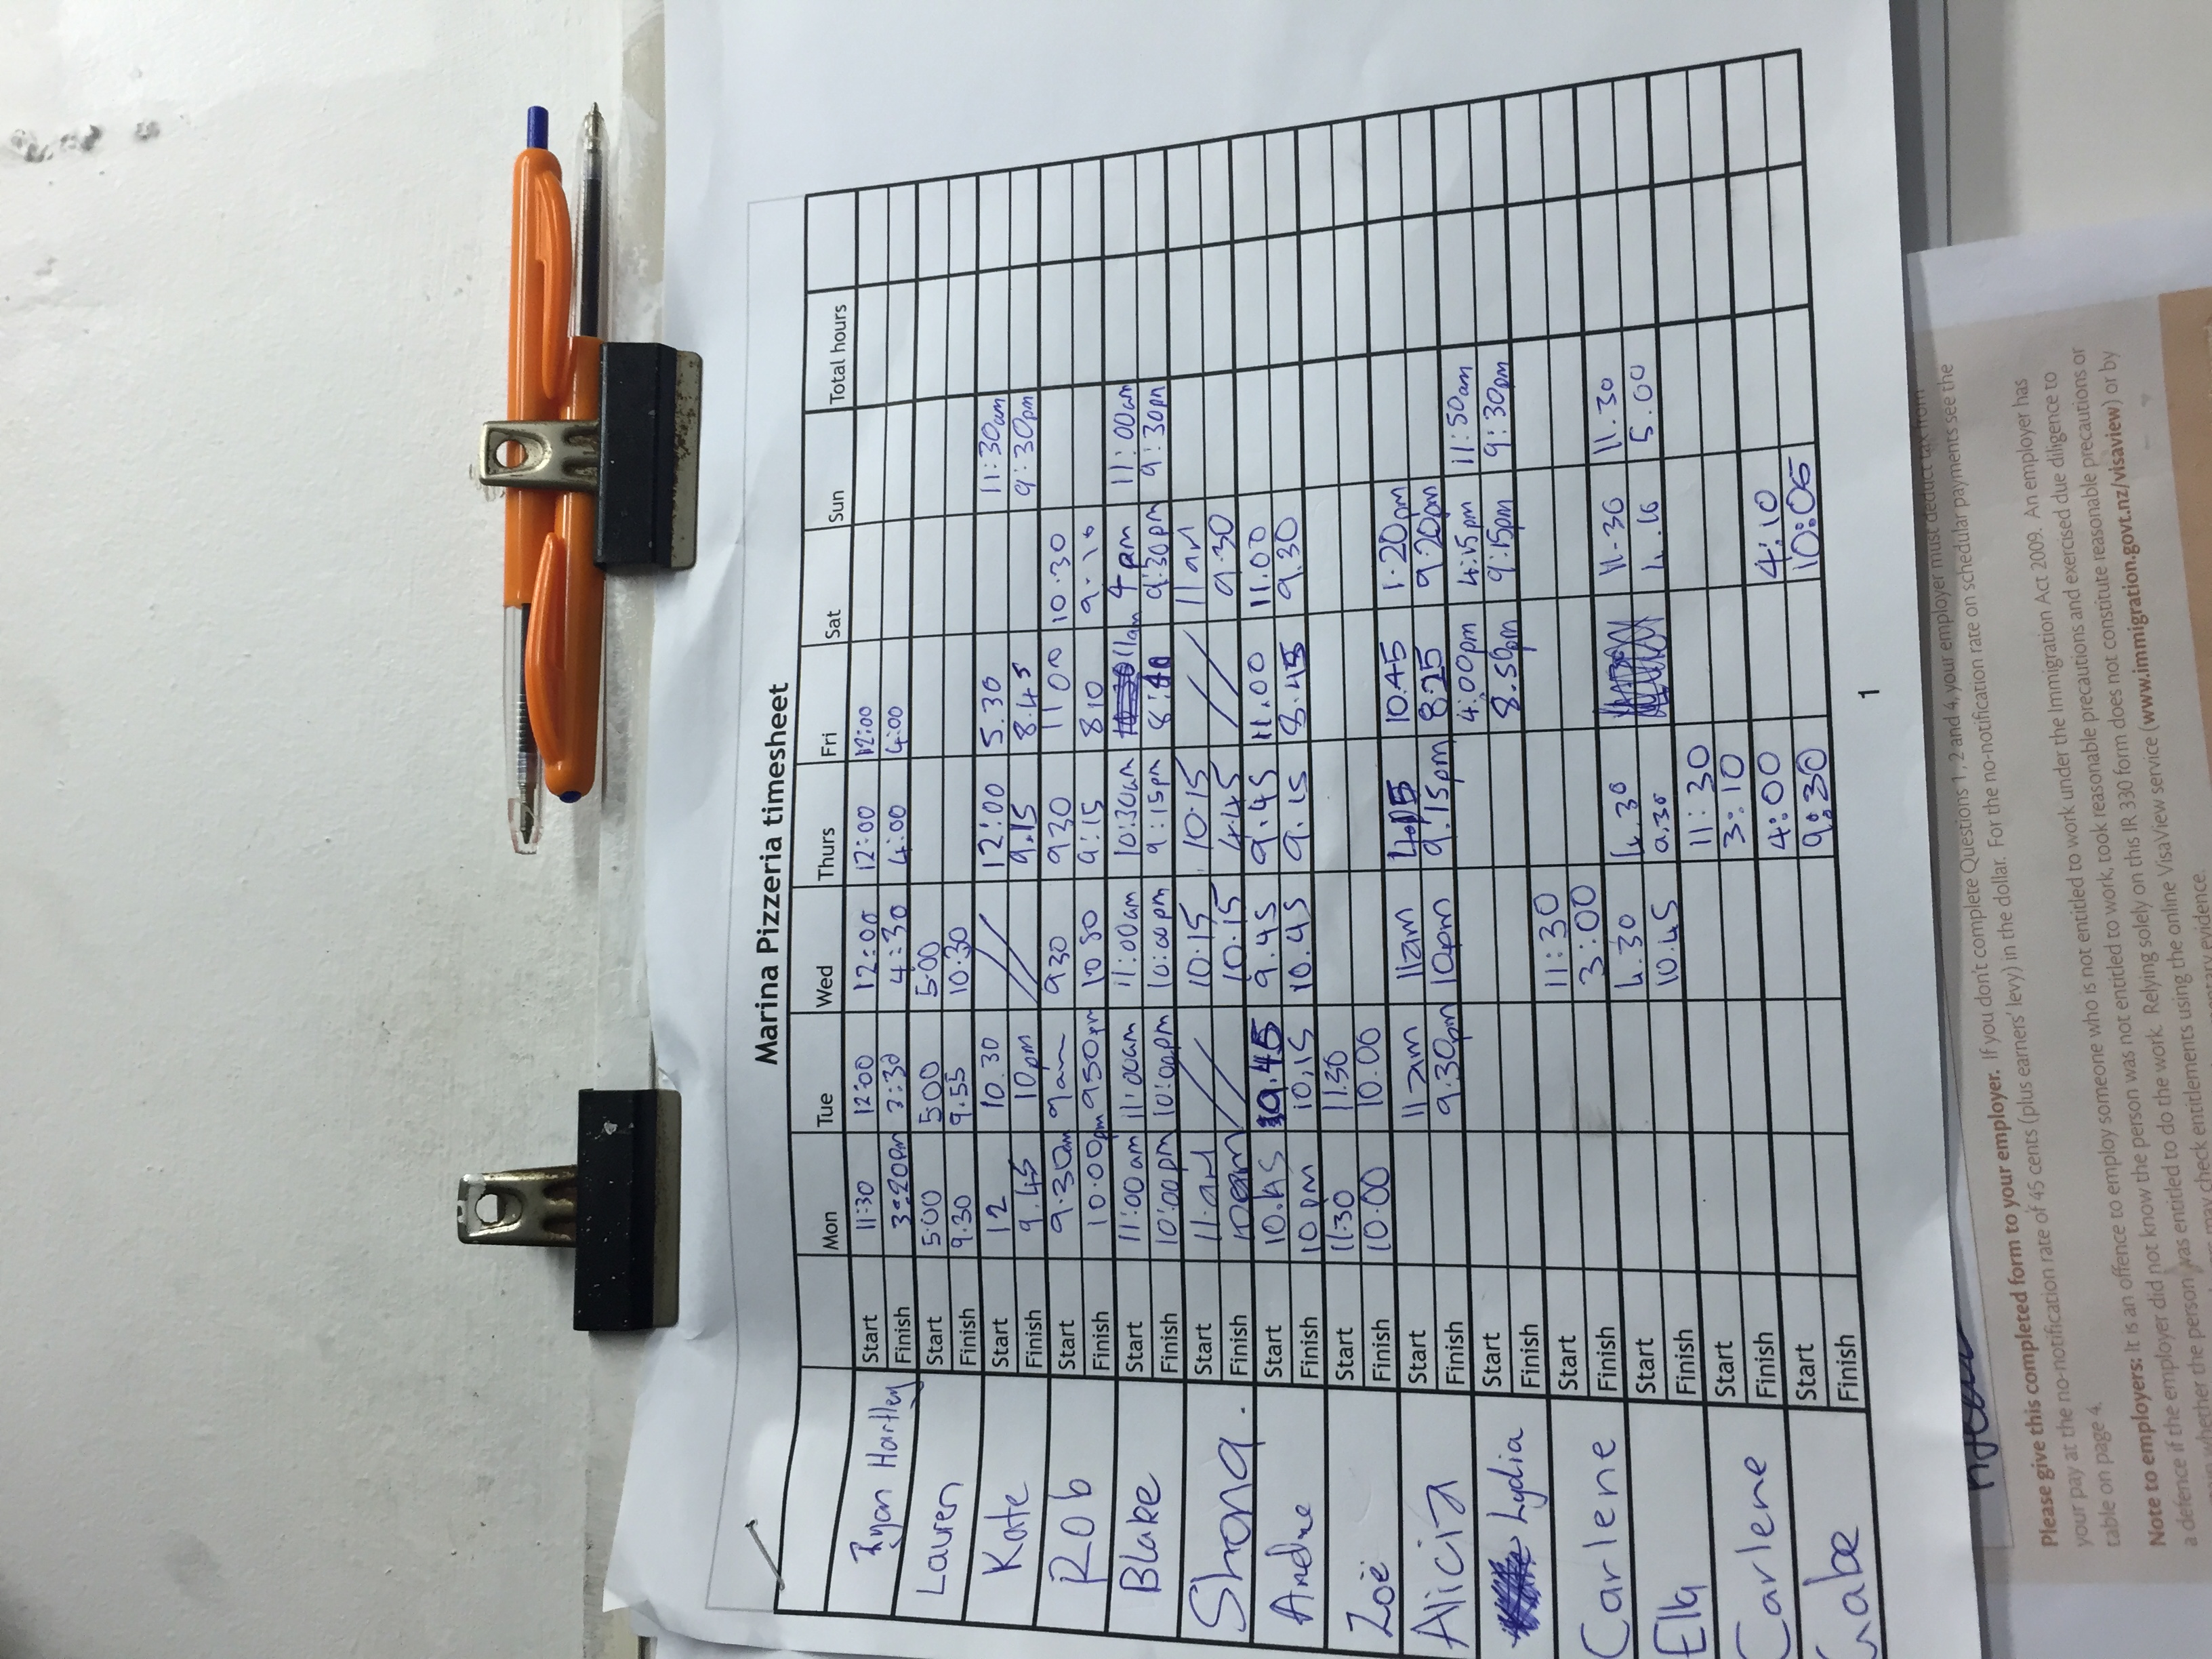 Marina Pizzeria timesheet
Mon Tue Wed Thurs Fri Sat Sun Total hours
Ryan Hartley
Start 11:30 12:00 12:00 12:00 12:00
Finish 3:20pm 3:30 4:30 4:00 4:00
Lauren
Start 5:00 5:00 5:00
Finish 9.30 9.55 10.30
Kate
Start 12 10.30 12:00 5.30 11:30am
Finish 9.45 10pm 9.15 8.45 9:30pm
Rob
Start 9:30am 9am 930 930 11 00 10.30
Finish 10:00pm 950pm 10 50 9:15 810
Blake
Start 11:00am 11:00am 11:00am 10:30am 11am 4pm 11:00am
Finish 10:00pm 10:00pm 10:00pm 9:15pm 9:30pm 9:30pm
Shona.
Start 11.am 10.15 10.15 11am
Finish 10.15 4.45 9.30
Andre
Start 10.45 9.45 9.45 11.00 11.00
Finish 10pm 10,15 10.45 9.15 8.45 9.30
Zoë
Start 11.30 11.30
Finish 10.00 10.00
Alicia
Start 11am 11am 4.15 10.45 1.20pm
Finish 9.30pm 10pm 9.15pm 8.25 9.20pm
Lydia
Start 4:00pm 4:15pm 11:50am
Finish 8.50pm 9:15pm 9:30pm
Carlene
Start 11:30
Finish 3:00
Ella
Start 4.30 4.30 11-30 11.30
Finish 10.45 9.30 4.10 5.00
Carlene
Start 11:30
Finish 3:10
Gabe
Start 4:00 4:10
Finish 9:30 10:05
1
Please give this completed form to your employer. If you don't complete Questions 1, 2 and 4, your employer must deduct tax from
your pay at the no-notification rate of 45 cents (plus earners' levy) in the dollar. For the no-notification rate on schedular payments see the
table on page 4.
Note to employers: It is an offence to employ someone who is not entitled to work under the Immigration Act 2009. An employer has
a defence if the employer did not know the person was not entitled to work, took reasonable precautions and exercised due diligence to
whether the person was entitled to do the work. Relying solely on this IR 330 form does not constitute reasonable precautions or
may check entitlements using the online VisaView service (www.immigration.govt.nz/visaview) or by
evidence.